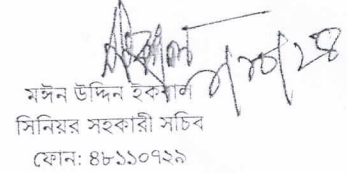 মঈন উদ্দিন ইকবাল
সিনিয়র সহকারী সচিব
ফোন: ৪৮১১০৭২৯